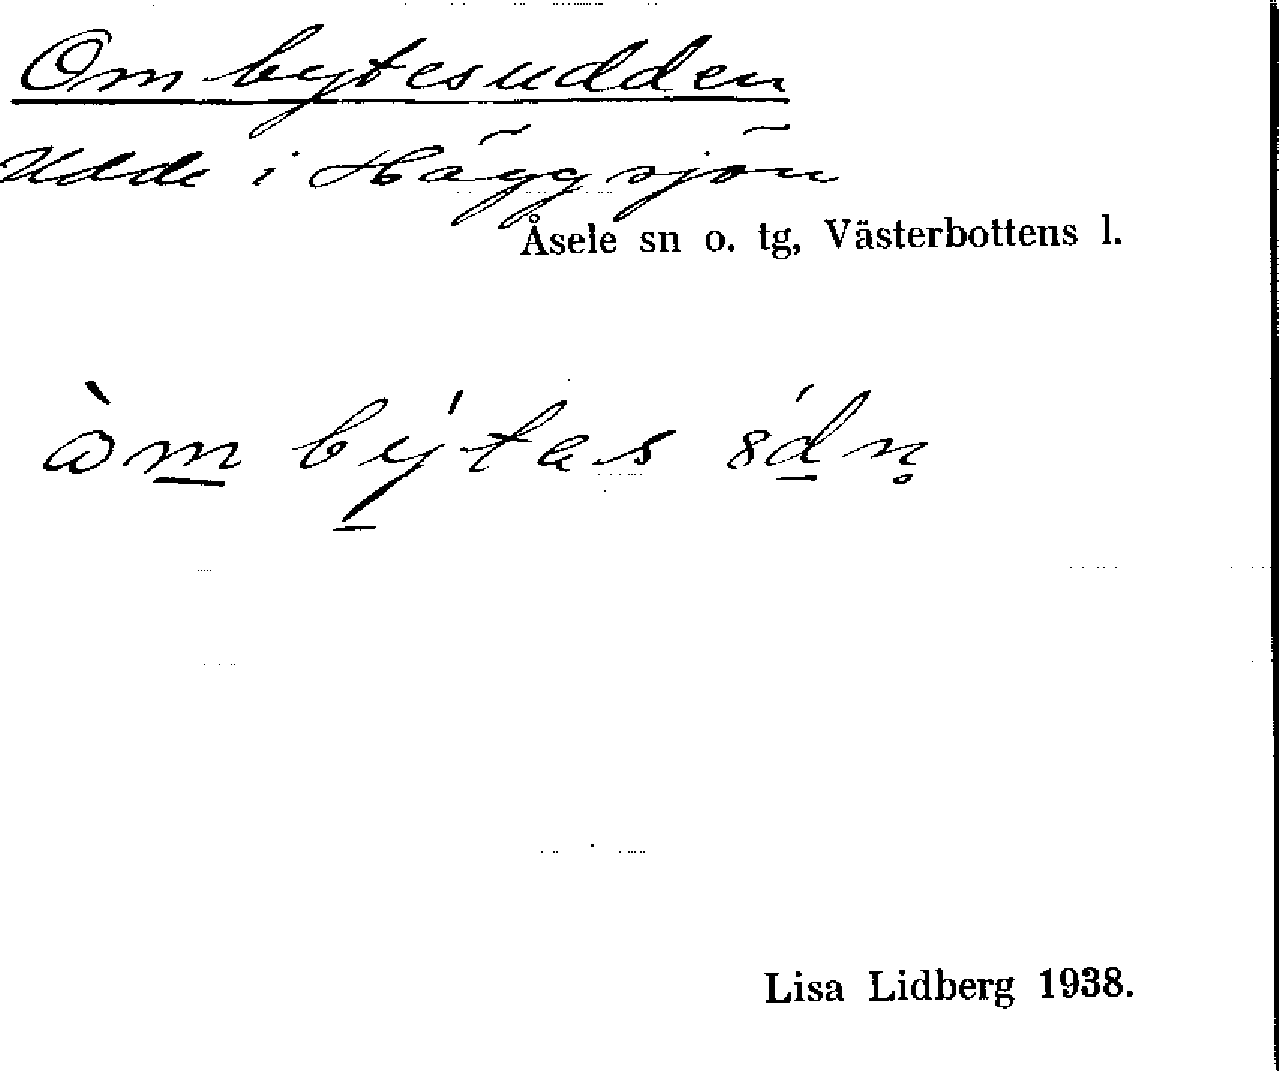 Ombytesudden
Udde i Häggsjön
Åsele sn o. tg, Västerbottens l.
Lisa Lidberg 1938.